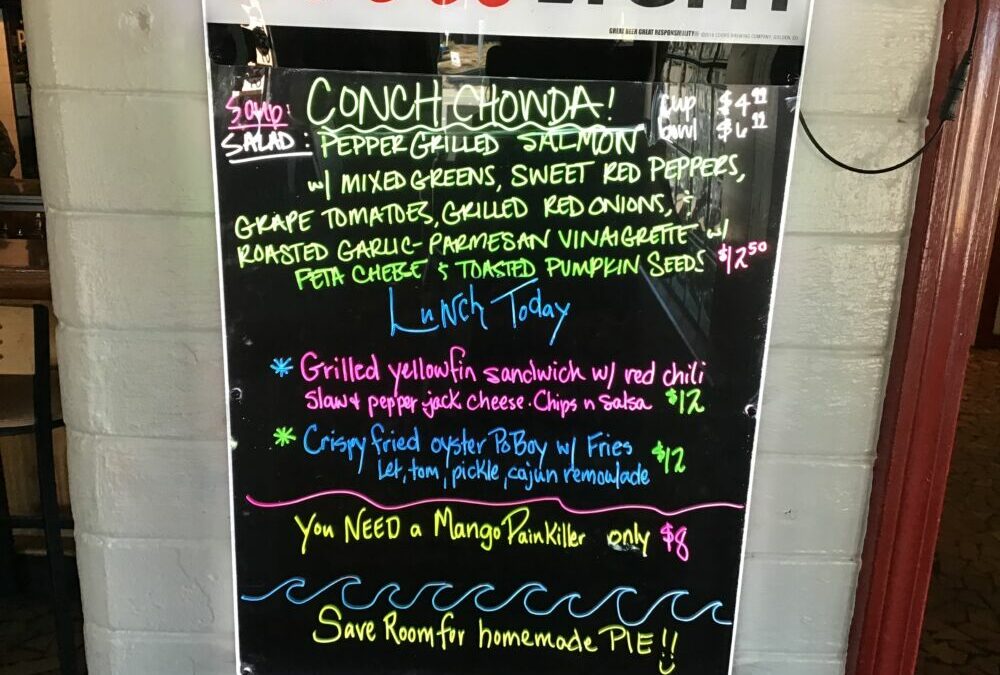 GREAT BEER GREAT RESPONSIBILITY® ©2014 COORS BREWING COMPANY, GOLDEN, CO
Soup: CONCH CHOWDA! cup $4.99
bowl $6.99
SALAD: PEPPER GRILLED SALMON
w/ MIXED GREENS, SWEET RED PEPPERS,
GRAPE TOMATOES, GRILLED RED ONIONS, &
ROASTED GARLIC-PARMESAN VINAIGRETTE w/
FETA CHEESE & TOASTED PUMPKIN SEEDS $12.50
Lunch Today
* Grilled yellowfin sandwich w/ red chili
slaw & pepper jack cheese. Chips n Salsa $12
* Crispy fried oyster PoBoy w/ Fries $12
Let, tom, pickle, cajun remoulade
You NEED a Mango PainKiller only $8
Save Room for homemade PIE!!